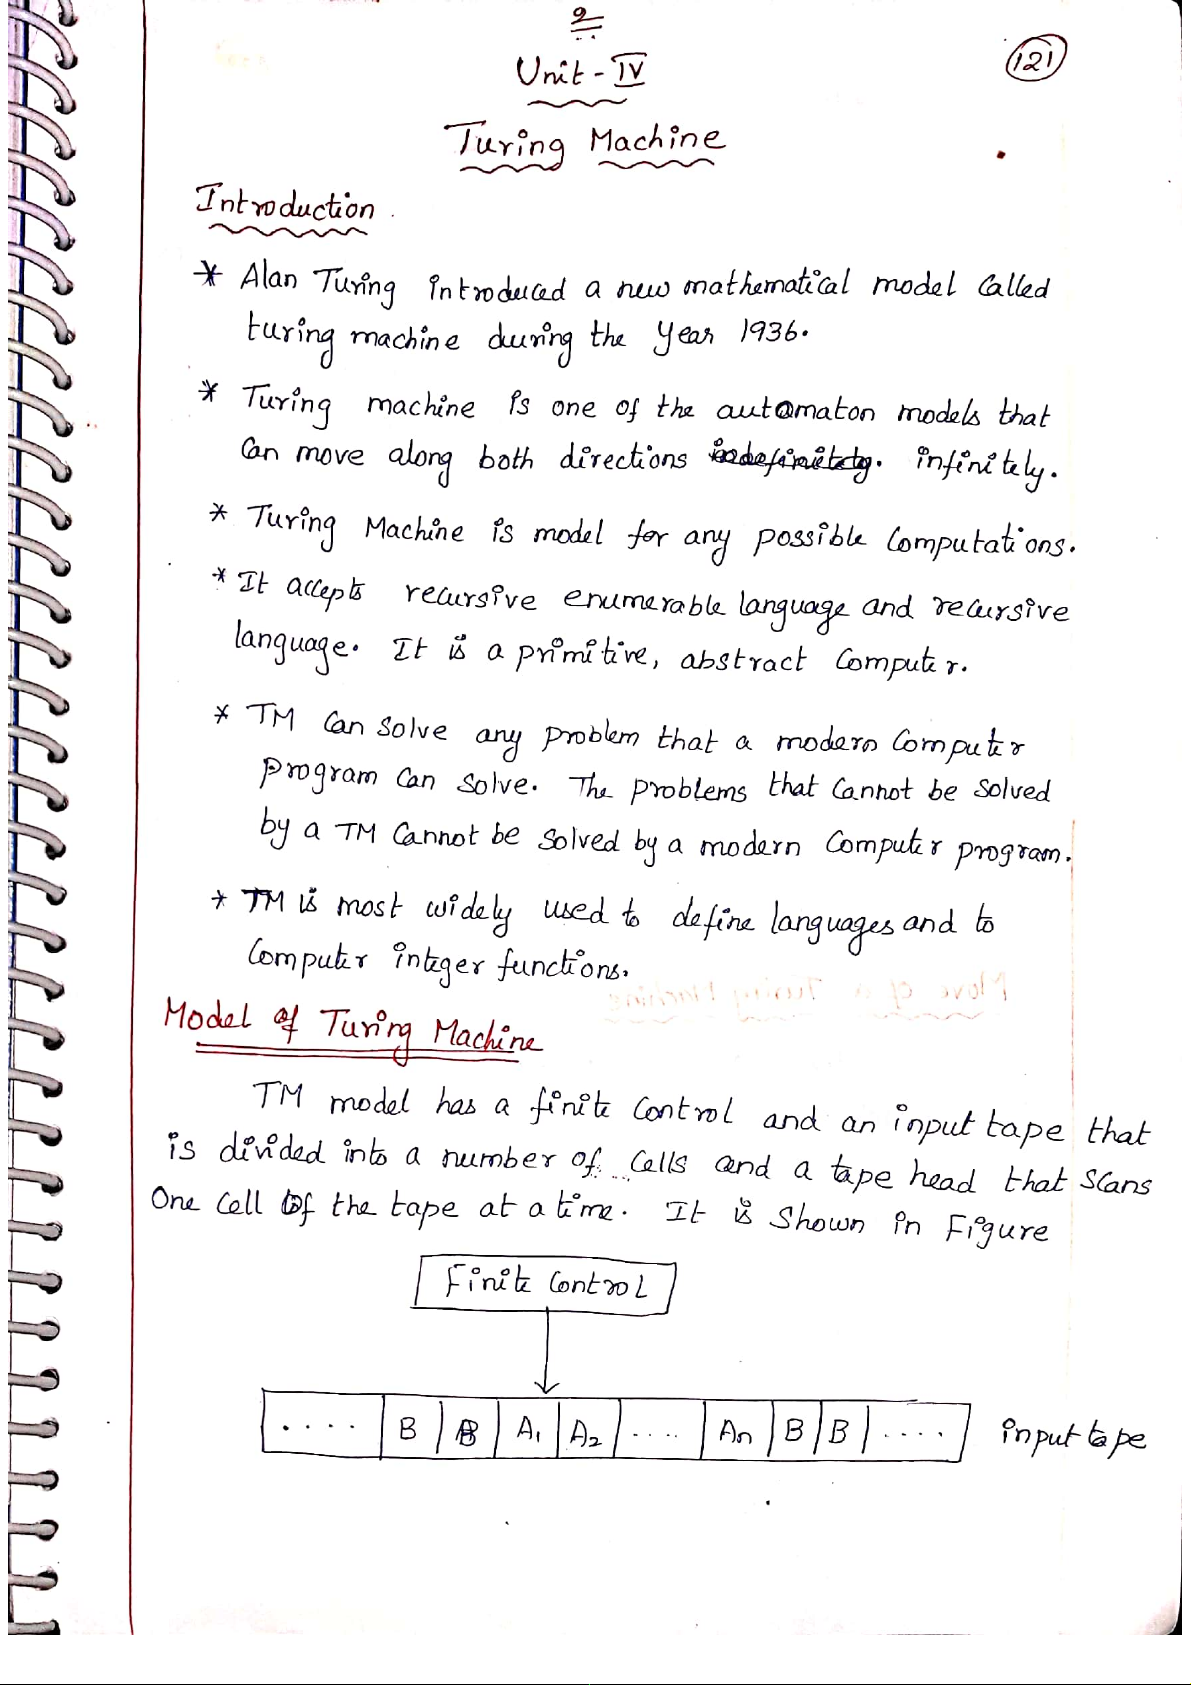 2
121
Unit - IV
Turing Machine
Introduction
* Alan Turing introduced a new mathematical model called
turing machine during the year 1936.
* Turing machine is one of the automaton models that
can move along both directions indefinitely. infinitely.
* Turing Machine is model for any possible computations.
* It accepts recursive enumerable language and recursive
language. It is a primitive, abstract computer.
* TM can solve any problem that a modern computer
program can solve. The problems that cannot be solved
by a TM cannot be solved by a modern computer program.
* TM is most widely used to define languages and to
computer integer functions.
Model of Turing Machine
TM model has a finite control and an input tape that
is divided into a number of cells and a tape head that scans
one cell of the tape at a time. It is shown in Figure
Finite control
.... B B A1 A2 .... An B B .... input tape